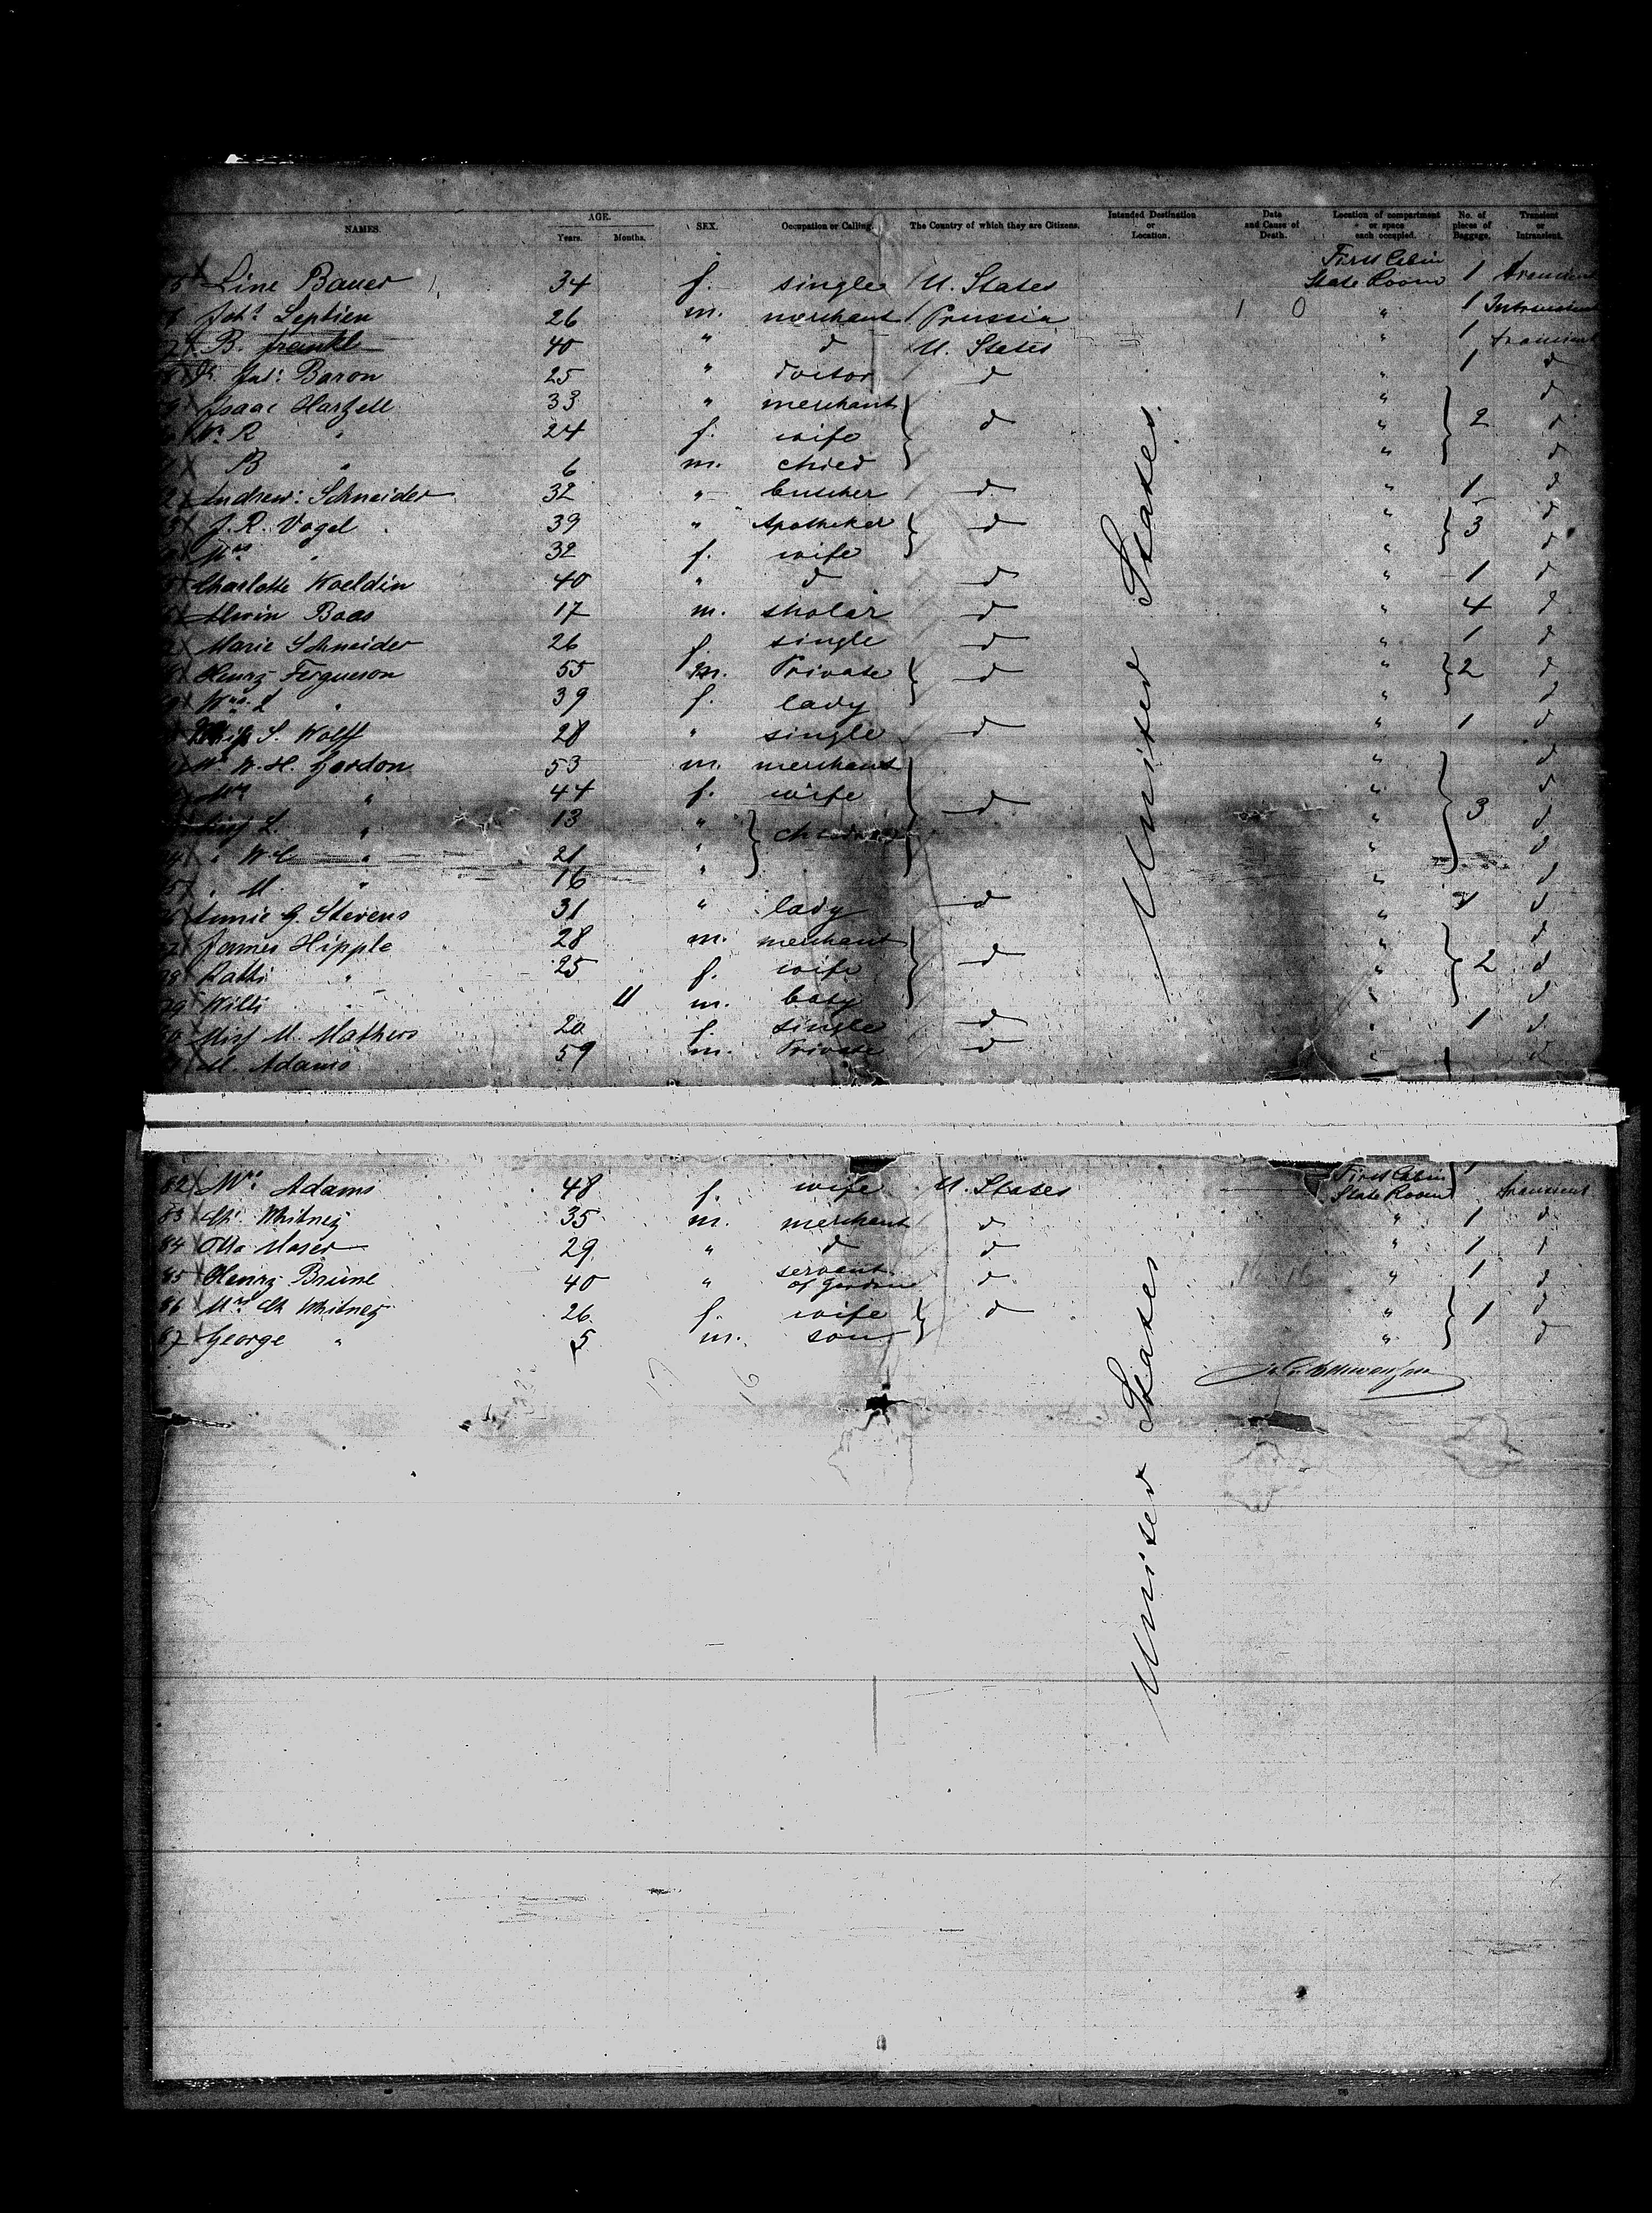 NAMES. AGE. Years. Months. SEX. Occupation or Calling. The Country of which they are Citizens. Intended Destination or Location. Date and Cause of Death. Location of compartment or space each occupied. No. of pieces of Baggage. Transient or Intransient.
Line Bauer 34 f. single U. States First Cabin State Room 1 transient
Joh? Leptien 26 m. merchant Prussia " 1 Intransient
B. Frankl 40 " d U. States " 1 transient
Baron 25 " doctor d " 1 d
Isaac Hartzell 33 " merchant d " 2 d
R " 24 f. wife " d
B " 6 m. child " d
Andrew Schneider 32 " butcher d " 1 d
J. R. Vogel 39 " Apotheker d " 3 d
Mrs " 32 f. wife " d
Charlotte Woeldin 40 " d d " 1 d
Alwin Boas 17 m. sholar d " 4 d
Marie Schneider 26 f. single d " 1 d
Henry Fergueson 55 m. Private d " 2 d
L " 39 f. lady " d
S. Wolff 28 " single d " 1 d
Mr W. H. Gordon 53 m. merchant d " 3 d
Mrs " 44 f. wife " d
Miss L. " 13 " children " d
" W. C. " 21 " " d
" M. " 16 " " d
Annie G. Stevens 31 " lady d " 1 d
James Hipple 28 m. merchant d " 2 d
Kathi " 25 f. wife " d
Willi " 11 m. baby " d
Miss M. Mathews 20 f. single d " 1 d
M. Adams 59 m. Private d " d
United States.
82 Mrs Adams 48 f. wife U. States First Cabin State Room transient
83 Ch. Whitney 35 m. merchant d " 1 d
84 Otto Moser 29 " d d " 1 d
85 Henry Brüne 40 " servant of Gordine d " 1 d
86 Mrs Ch Whitney 26 f. wife d " 1 d
87 George " 5 m. son " d
United States